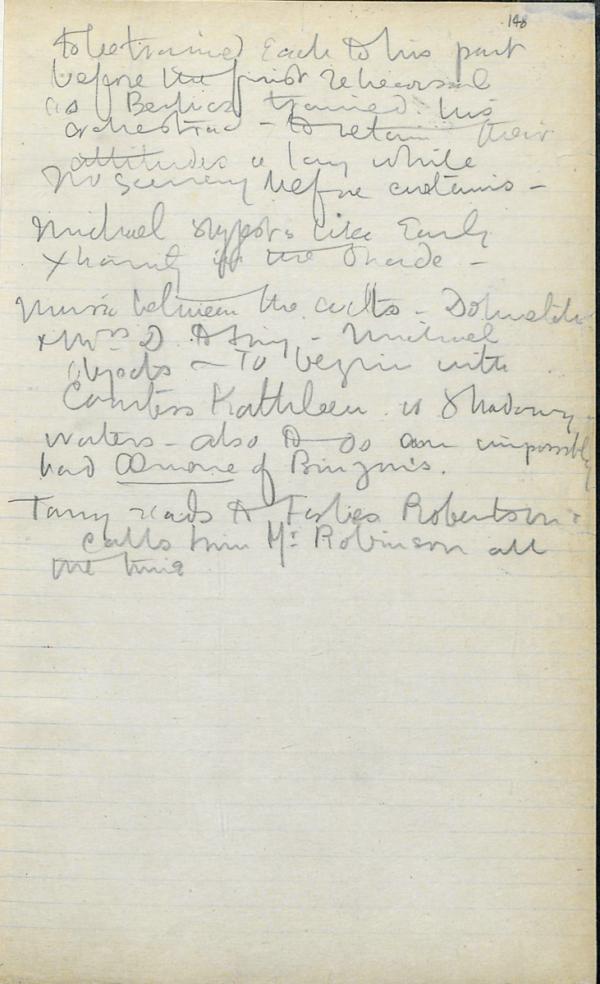 148
to be trained each to his part
before the first rehearsal
as Berlioz trained his
orchestra - to retain their
attitudes a long while
No scenery before curtains -
Michael suggests like Early
Xtianity in the Shade -
Music between the acts - Dolmetsch
& Mrs D to sing - Michael
objects - To begin with
Countess Kathleen or Shadowy
waters - also to do an impossibly
bad Œnone of Binyon's.
Tarry reads to Forbes Robertson &
calls him Mr Robinson all
the time